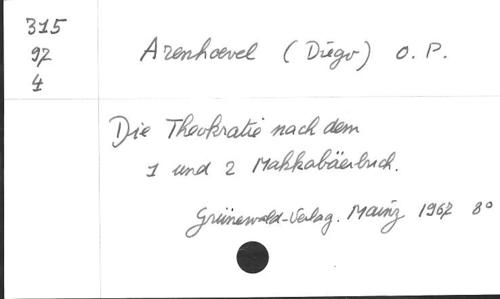 315
97
4
Arenhoevel (Diego) O. P.
Die Theokratie nach dem
1 und 2 Makkabäerbuch.
Grünewald-Verlag. Mainz 1967 8°